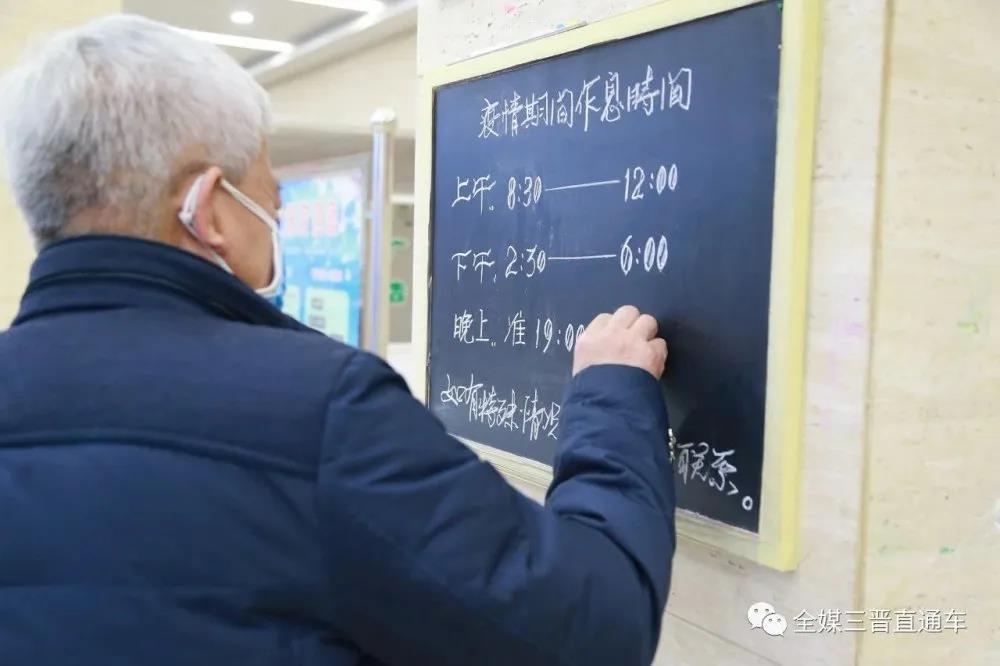 疫情期间作息時间
上午: 8:30——12:00
下午: 2:30——6:00
晚上: 准19:00
如有特殊情况 联系。
全媒三晋直通车